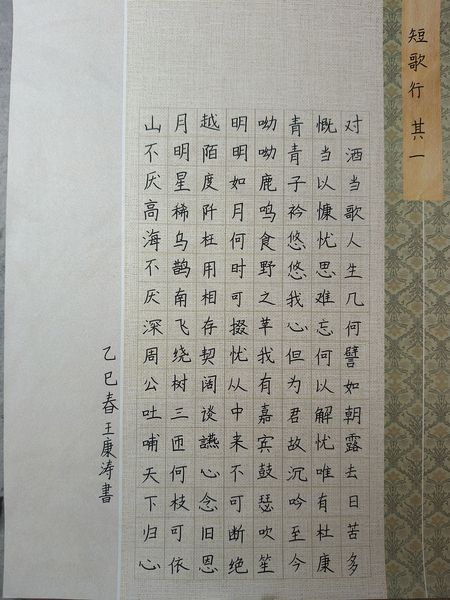 短歌行 其一
对酒当歌人生几何譬如朝露去日苦多
慨当以慷忧思难忘何以解忧唯有杜康
青青子衿悠悠我心但为君故沉吟至今
呦呦鹿鸣食野之苹我有嘉宾鼓瑟吹笙
明明如月何时可掇忧从中来不可断绝
越陌度阡枉用相存契阔谈讌心念旧恩
月明星稀乌鹊南飞绕树三匝何枝可依
山不厌高海不厌深周公吐哺天下归心
乙巳春王康涛書